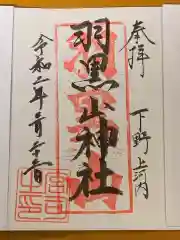 奉拝
下野上河内
羽黒山神社
令和二年